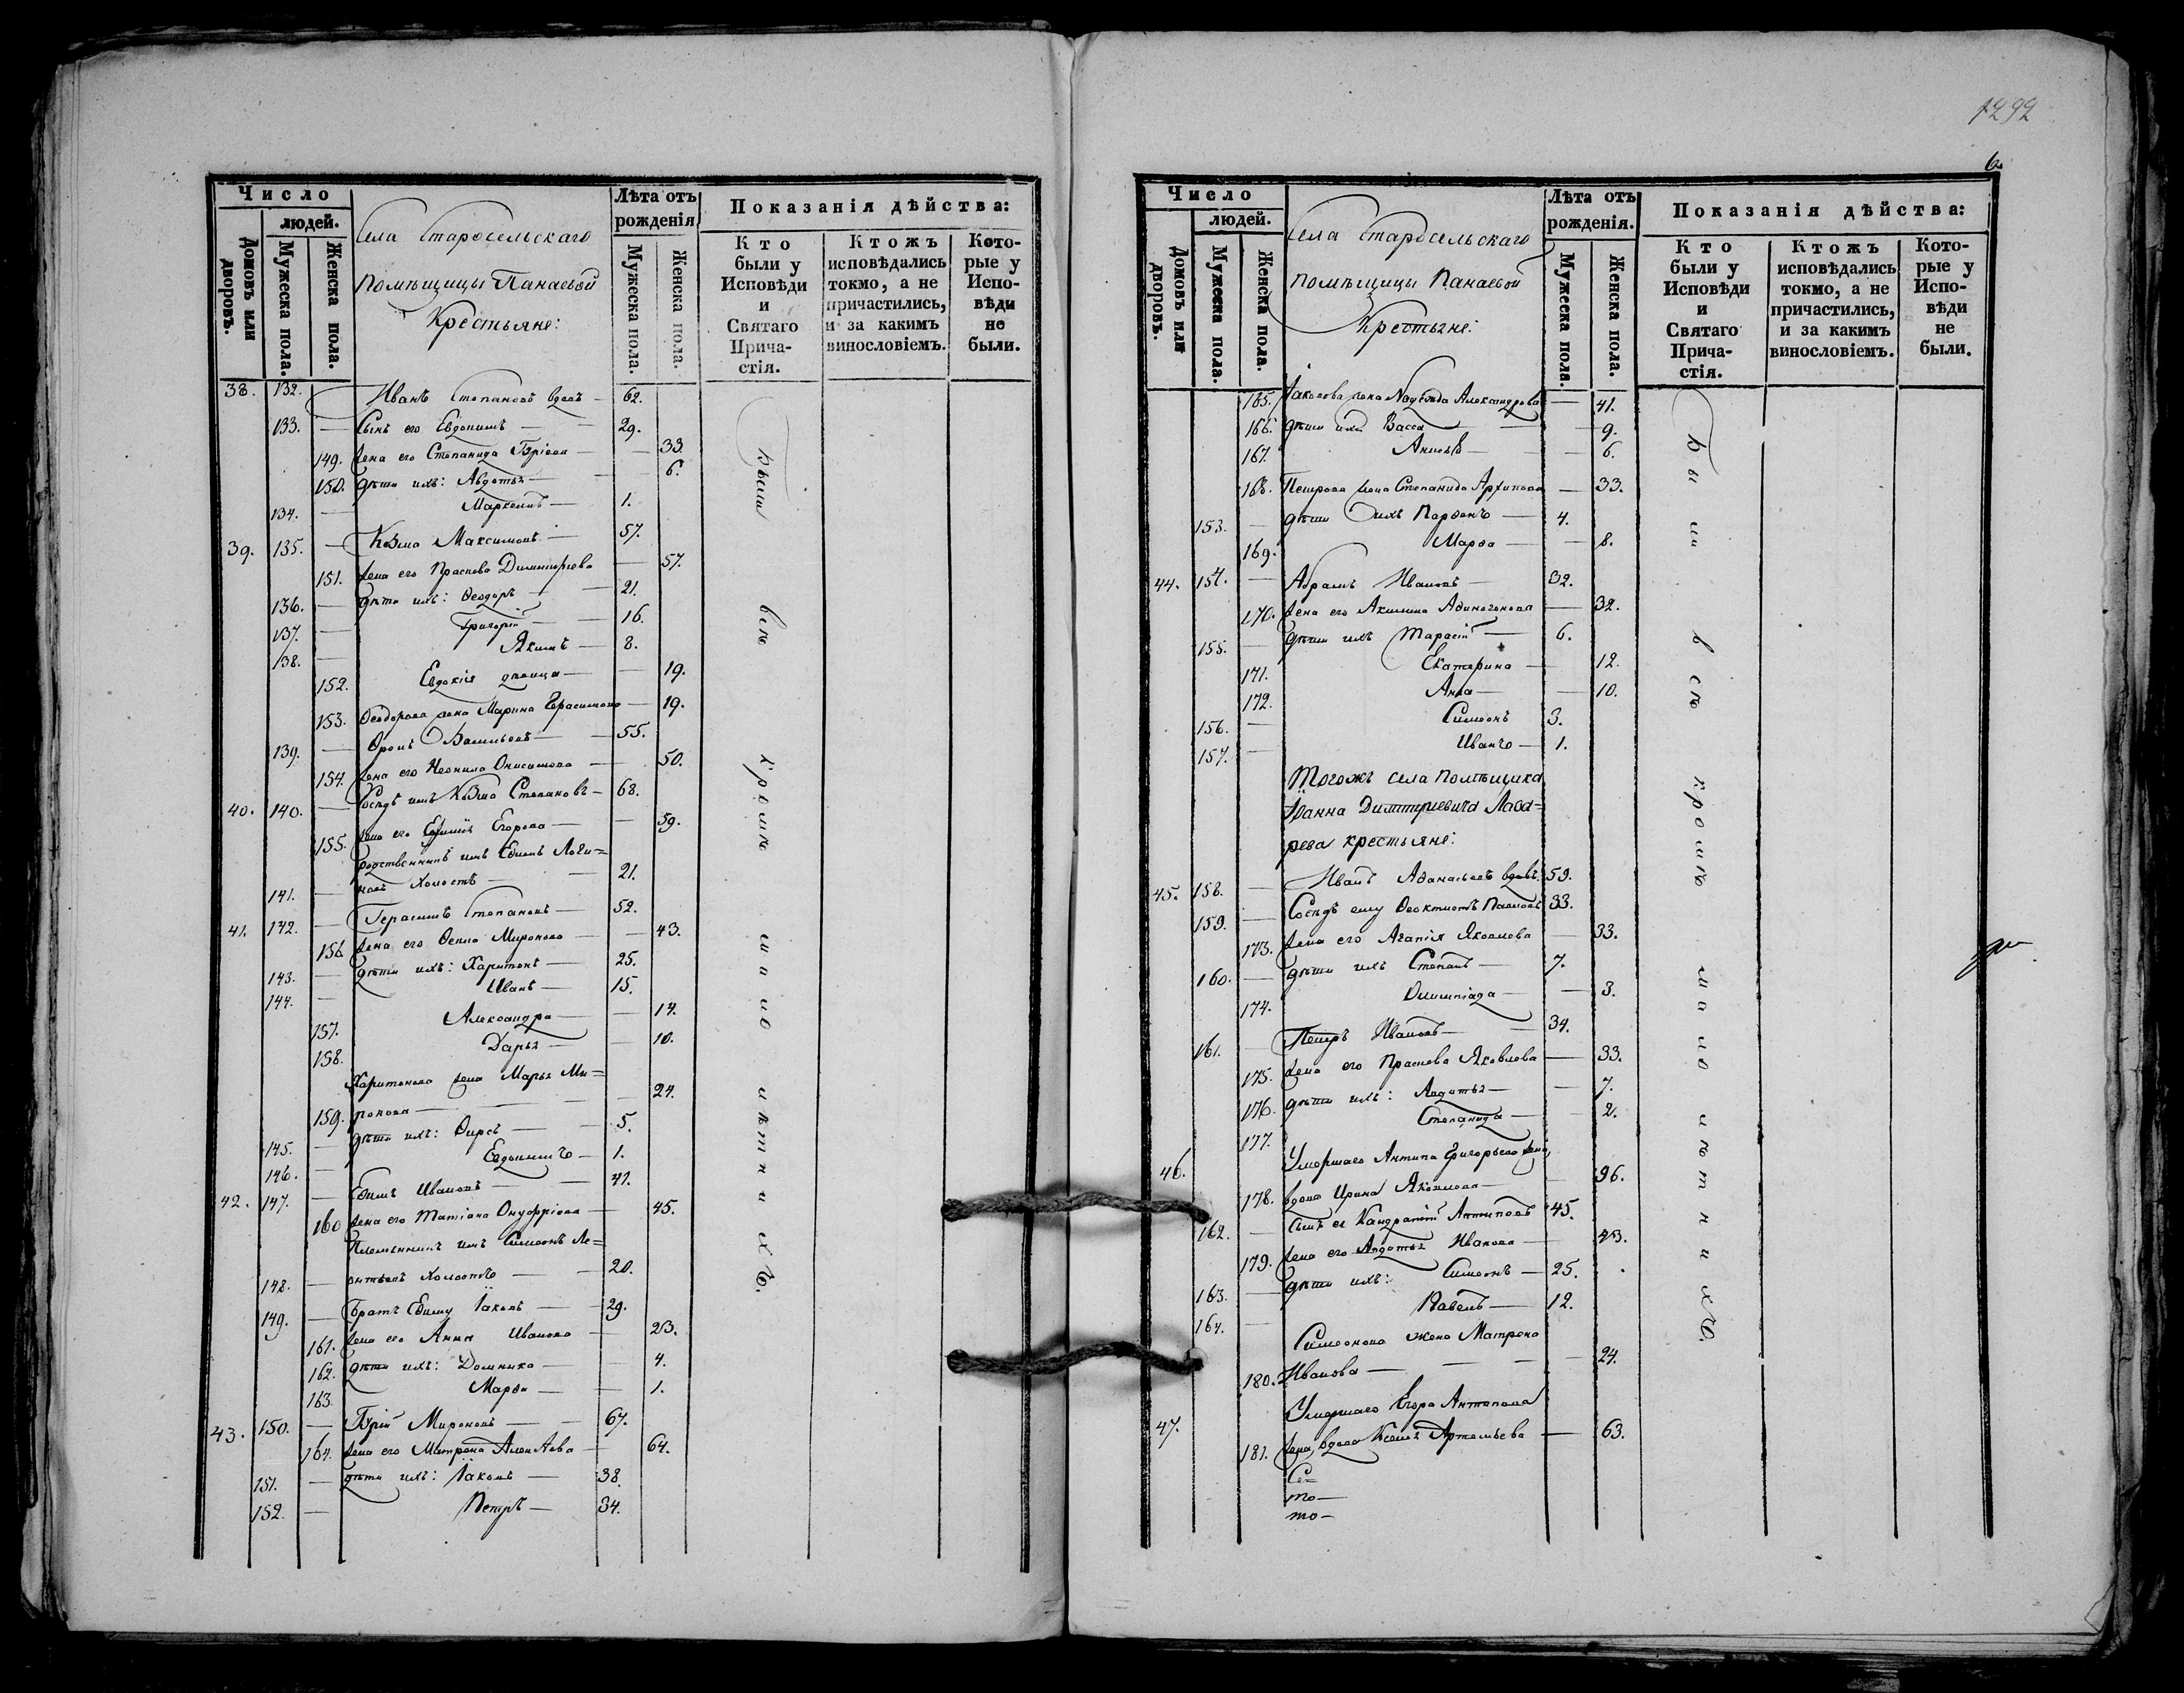 Число
людей.
Домовъ или дворовъ.
Мужеска пола.
Женска пола.
Села Старосельскаго
помѣщицы Панаевой
Крестьяне:
Лѣта отъ
рожденія
Мужеска пола.
Женска пола.
Показанія дѣйства:
Кто
были у
Исповѣди
и
Святаго
Прича-
стія.
Ктожъ
исповѣдались
токмо, а не
причастились,
и за какимъ
винословіемъ.
Кото-
рые у
Испо-
вѣди
не
были.
38. 132. — Иванъ Степановъ вдовъ — 62.
133. — Сынъ его Евдокимъ — 29.
149. жена его Степанида Гурiева — 33.
150. дѣти ихъ: Авдотья — 6.
134. — Маркелъ — 1.
39. 135. — Козма Максимовъ — 57.
151. жена его Праскева Димитріева — 57.
136. — дѣти ихъ: Ѳеодоръ — 21.
137. — Григорій — 16.
138. — Якимъ — 8.
152. Евдокія дѣвица — 19.
153. Ѳеодорова жена Марина Герасимова — 19.
139. — Ѳролъ Васильевъ — 55.
154. жена его Неонила Онисимова — 50.
40. 140. — Сосѣдъ имъ Козма Степановъ — 68.
155. жена его Егорова — 59.
родственникъ имъ Ефимъ Логи=
141. — новъ холостъ — 21.
41. 142. — Герасимъ Степановъ — 52.
156. жена его Ѳекла Миронова — 43.
143. — дѣти ихъ: Харитонъ — 25.
144. — Иванъ — 15.
157. Александра — 14.
158. Дарья — 10.
Харитонова жена Марья Ми=
159. ронова — 24.
145. — дѣти ихъ: Ѳирсъ — 5.
146. — Евдокимъ — 1.
42. 147. — Ефимъ Ивановъ — 41.
160 жена его Татіана Онуфріева — 45.
Племянникъ имъ Симеонъ Ле=
148. — онтьевъ холостъ — 20.
149. — Братъ Ефиму Іаковъ — 29.
161. жена его Анна Иванова — 23.
162. дѣти ихъ: Домника — 4.
163. Марѳа — 1.
43. 150. — Гурій Мироновъ — 67.
164. жена его Матрона — 64.
151. — дѣти ихъ: Іаковъ — 38.
152. — Петръ — 34.
Были всѣ кромѣ малолѣтнихъ.
1292
6.
Число
людей.
Домовъ или дворовъ.
Мужеска пола.
Женска пола.
Села Старосельскаго
помѣщицы Панаевой
Крестьяне:
Лѣта отъ
рожденія.
Мужеска пола.
Женска пола.
Показанія дѣйства:
Кто
были у
Исповѣди
и
Святаго
Прича-
стія.
Ктожъ
исповѣдались
токмо, а не
причастились,
и за какимъ
винословіемъ.
Кото-
рые у
Испо-
вѣди
не
были.
165. Іаковова жена Надежда Александрова — 41.
166. дѣти ихъ Васса — 9.
167. — 6.
168. Петрова жена Степанида Архипова — 33.
153. — дѣти ихъ Парѳенъ — 4.
169. Марѳа — 8.
44. 154. — Абрамъ Ивановъ — 32.
170. жена его Акилина Аѳиногенова — 32.
155. — дѣти ихъ Тарасій — 6.
171. Екатерина — 12.
172. Анна — 10.
156. — Симеонъ 3.
157. — Иванъ — 1.
Тогожъ села помѣщика
Іоанна Димитріевича Лаза=
рева крестьяне:
45. 158. — Иванъ Аѳанасьевъ вдовъ. 59.
159. — Сосѣдъ ему Ѳеоктистъ Павловъ 33.
173. жена его Агапія Яковлева — 33.
160. — дѣти ихъ Степанъ — 7.
174. Олимпіада — 3.
161. — Петръ Ивановъ — 34.
175. жена его Праскева Яковлева — 33.
176. дѣти ихъ: Авдотья — 7.
177. Степанида — 2.
46. Умершаго Антипа Григорьева жена,
178. вдова Ирина Яковлева — 96.
162. — Сынъ ея Кандратій Антиповъ 45.
179. жена его Авдотья Иванова — 43.
163. — дѣти ихъ: Симеонъ — 25.
164. — Павелъ — 12.
Симеонова жена Матрона
180. Иванова — 24.
47. Умершаго Егора Антипова
181. жена, вдова Ксенья Артемьева — 63.
Се=
то—
то—
Были всѣ кромѣ малолѣтнихъ.